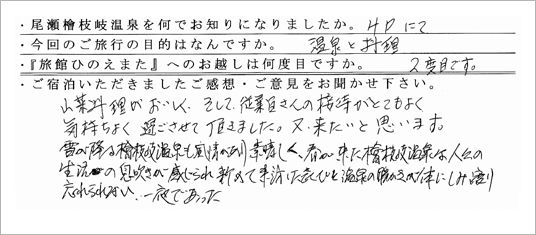 ・尾瀬檜枝岐温泉を何でお知りになりましたか。 HPにて
・今回のご旅行の目的はなんですか。 温泉と料理
・『旅館ひのえまた』へのお越しは何度目ですか。 2度目です。
・ご宿泊いただきましたご感想・ご意見をお聞かせ下さい。
山菜料理がおいしく、そして、従業員さんの接待がとてもよく
気持ちよく過ごさせて頂きました。又、来たいと思います。
雪が降る檜枝岐温泉も風情があり素晴しく、春が来た檜枝岐温泉は人々の
生活の息吹きが感じられ新めて来訪した喜びと温泉の暖かさが体にしみ渡り
忘れられない一夜であった